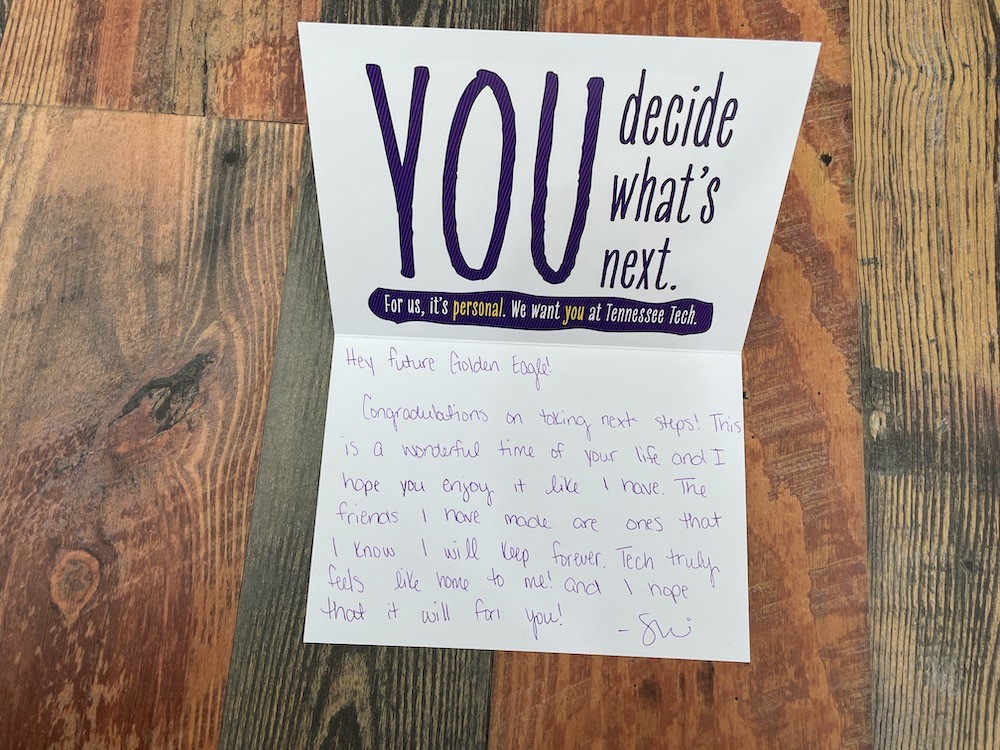 YOU decide
what's
next.
For us, it's personal. We want you at Tennessee Tech.
Hey future Golden Eagle!
Congradulations on taking next steps! This
is a wonderful time of your life and I
hope you enjoy it like I have. The
friends I have made are ones that
I know I will keep forever. Tech truly
feels like home to me! and I hope
that it will for you!